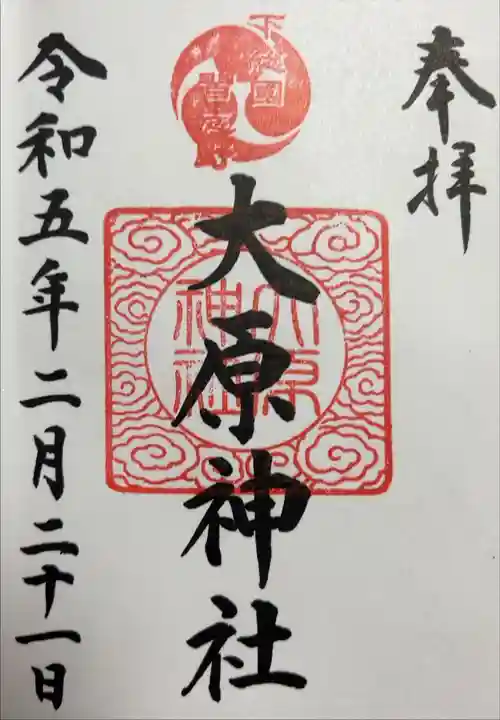 奉拝
下総國
大原神社
大原
神社
令和五年二月二十一日